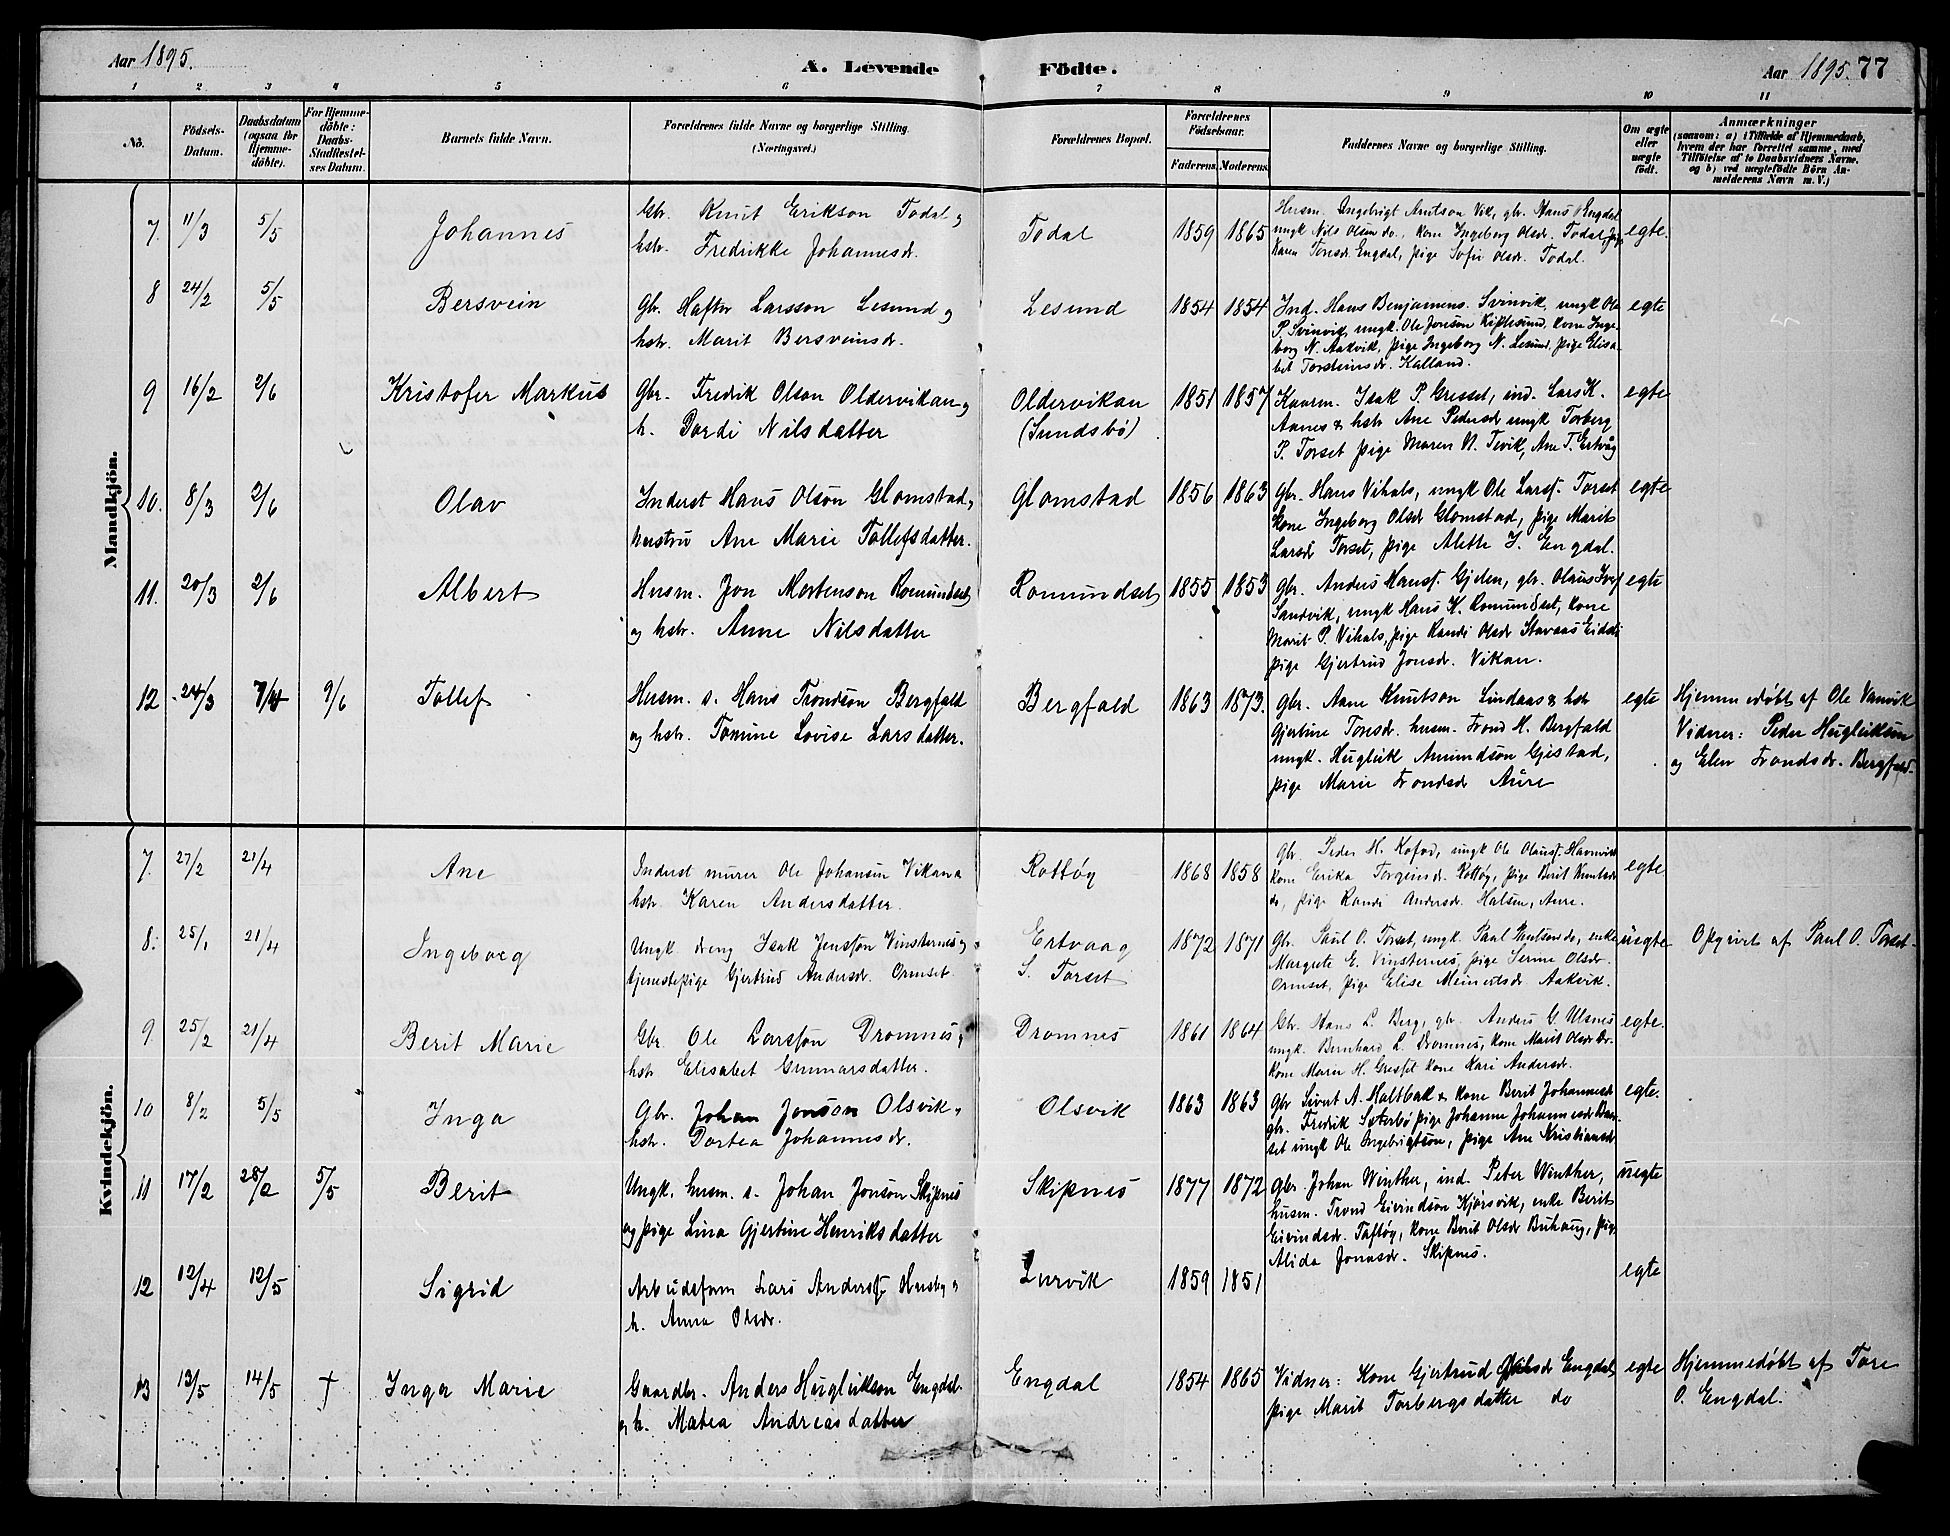 Aar 1895.
A. Levende Födte.
Aar 1895. 77
1 2 3 4 5 6 7 8 9 10 11
No.
Födsels-Datum.
Daabsdatum (ogsaa for Hjemmedöbte).
For Hjemmedöbte: Daabs-Stadfæstelses Datum.
Barnets fulde Navn.
Forældrenes fulde Navne og borgerlige Stilling.
(Næringsvei.)
Forældrenes Bopæl.
Forældrenes Födselsaar.
Faderens. Moderens.
Faddernes Navne og borgerlige Stilling.
Om ægte eller uægte födt.
Anmærkninger
(saasom: a) i Tilfælde af Hjemmedaab, hvem der har forrettet samme, med Tilföielse af to Daabsvidners Navne, og b) ved uægtefödte Börn Anmelderens Navn m. V.)
Mandkjön.
7. 11/3 5/5 Johannes
Gbr. Knut Erikson Todal og
hstr. Fredrikke Johannesdr.
Todal 1859 1865
Husm. Ingebrigt Amtson Vik, gbr. Hans Engdal
ungk Nils Olsen do., kone Ingeborg Olsdr. Todal, pige
Karen Toresdr Engdal, pige Sofie Olsdr. Todal.
egte.
8 24/2 5/5 Bersvein
Gbr. Haftor Larsson Lesund og
hstr. Marit Bersveinsdr.
Lesund 1854 1854
Ind. Hans Benjamins. Svinvik, ungk Ole
P. Svinvik, ungk. Ole Jonson Kiplesund, kone Inge-
borg N. Aakvik, pige Ingeborg N. Lesund, pige Elisa-
bet Torsteinsdr. Kalland.
egte
9 16/2 2/6 Kristofer Markus
Gbr. Fredrik Olson Oldervikan og
h. Dordi Nilsdatter
Oldervikan
(Sundsbö)
1851 1857
Kaarm. Isak P. Gresset, ind. Lars K.
Aanes & hstr Ane Pedersdr ungk Torberg
P. Torset pige Maren N. Tevik, Ane T. Ertvåg
egte
10. 8/3 2/6 Olav
Inderst Hans Olson Glomstad,
hustru Ane Marie Tollefsdatter.
Glomstad 1856 1863
Gbr. Hans Vihals, ungk Ole Larss. Torset
kone Ingeborg Olsdr Glomstad, pige Marit
Larsdr Torset, pige Alette J. Engdal.
egte
11. 20/3 2/6 Albert
Husm. Jon Mortenson Romundset
og hstr. Anne Nilsdatter
Romundset 1855 1853
Gbr. Anders Hanss. Gjelen, gbr. Olaus Ivers
Sandvik, ungk Hans K. Romundset, kone
Marit P. Vihals, pige Randi Olsdr Stavaas Eidet
pige Gjertrud Jonsdr. Vikan.
egte
12 24/3 7/4 9/6 Tollef
Husm. s. Hans Trondson Bergfald
og hstr. Tomine Lovise Larsdatter.
Bergfald 1863 1873.
Gbr. Aane Knutson Lindaas & hstr
Gjertine Toresdr. husm. Trond H. Bergfald
ungk. Hugleik Amundson Gjestad,
pige Marie Trondsdr Aure
egte
Hjemmedöbt af Ole Vanvik
Vidner: Peder Hugleikson
og Elen Trondsdr. Bergfald.
Kvindekjön.
7. 27/2 21/4 Ane
Inderst murer Ole Johansen Vikan &
hstr. Karen Andersdatter.
Rottöy 1868 1858
Gbr. Peder H. Kofod, ungk Ole Olauss. Havnvik
kone Erika Torgeirsdr. Rottöy, pige Berit Knutsdr
do, pige Randi Andersdr. Halsen, Aure.
egte
8. 25/1 21/4 Ingeborg
Ungk dreng Isak Jensson Vinsternes og
tjenestepige Gjertrud Andersdr. Ormset.
Ertvaag
S. Torset
1872 1871
Gbr. Paul O. Torset, ungk. Paul Paulson do, enke
Margrete E. Vinsternes, pige Serine Olsdr.
Ormset, pige Elise Meinertsdr Aakvik.
uegte
Opgivet af Paul O. Torset.
9. 25/2 21/4 Berit Marie
Gbr. Ole Larsson Dromnes &
hstr. Elisabet Gunnarsdatter.
Dromnes 1861 1864
Gbr. Hans L. Berg, gbr. Anders G. Ulsnes
ungk. Bernhard L. Dromnes, kone Marit Olsdr Dr.
kone Maren H. Gresset kone Kari Andersdr.
egte.
10 8/2 5/5 Inga
Gbr. Johan Jonson Olsvik,
hstr. Dortea Johannesdr.
Olsvik 1863 1863
Gbr Sivert A. Maltbak & kone Berit Johannesdr
gbr. Fredrik Sæterbö pige Johanne Johannesdr Baus-
set ungk Ole Ingebrigtson, pige Ane Kristiansdr
egte.
11 17/2 28/2 5/5 Berit
Ungk. husm. s. Johan Jonson Skipnes
og pige Lina Gjertine Henriksdatter
Skipnes 1877 1872
Gbr. Johan Winther, ind. Peter Winther,
husm. Trond Eivindson Kjörsvik, enke Berit
Eivindsdr. Taftöy, kone Berit Olsdr Buhaug, pige
Alida Jonasdr. Skipnes.
uegte
12 12/4 12/5 Sigrid
Arbeidsform. Lars Anderss. Husby &
h. Anna Olsdr.
Lurvik 1859 1851
egte
13 13/5 14/5 † Inger Marie
Gaardbr. Anders Hugleikson Engdal
og h. Matea Andreasdatter
Engdal 1854 1865
Vidner: Kone Gjertrud Nilsdr Engdal
pige Marit Torbergsdatter do
egte
Hjemmedöbt af Tore
O. Engdal.